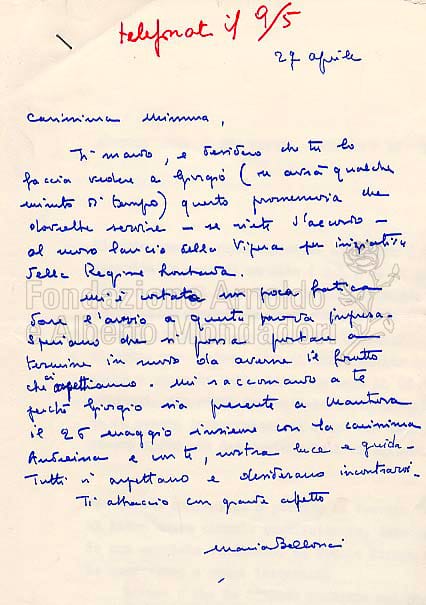 telefonato il 9/5
27 aprile
Carissima Mimma,
Ti mando, e desidero che tu lo
faccia vedere a Giorgio (se avrà qualche
minuto di tempo) questo promemoria che
dovrebbe servire – se siete d'accordo –
al nuovo lancio della Vipera per iniziativa
della Regione Lombarda.
Mi è costata un poco fatica
dare l'avvio a questa nuova impresa.
Speriamo che si possa portare a
termine in modo da averne il frutto
che ci aspettiamo. Mi raccomando a te
perché Giorgio sia presente a Mantova
il 26 maggio insieme con la carissima
Andreina e con te, nostra luce e guida.
Tutti vi aspettano e desiderano incontrarvi.
Ti abbraccio con grande affetto
Maria Bellonci
Fondazione Arnoldo
e Alberto Mondadori